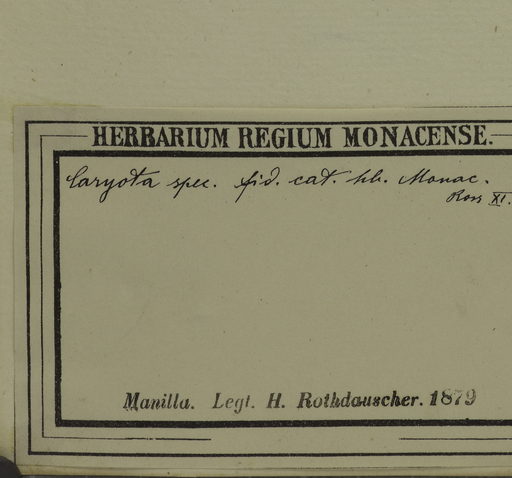 HERBARIUM REGIUM MONACENSE.
Caryota spec. fid. cat. hb. Monac.
Ross XI.
Manilla. Legt. H. Rothdauscher. 1879